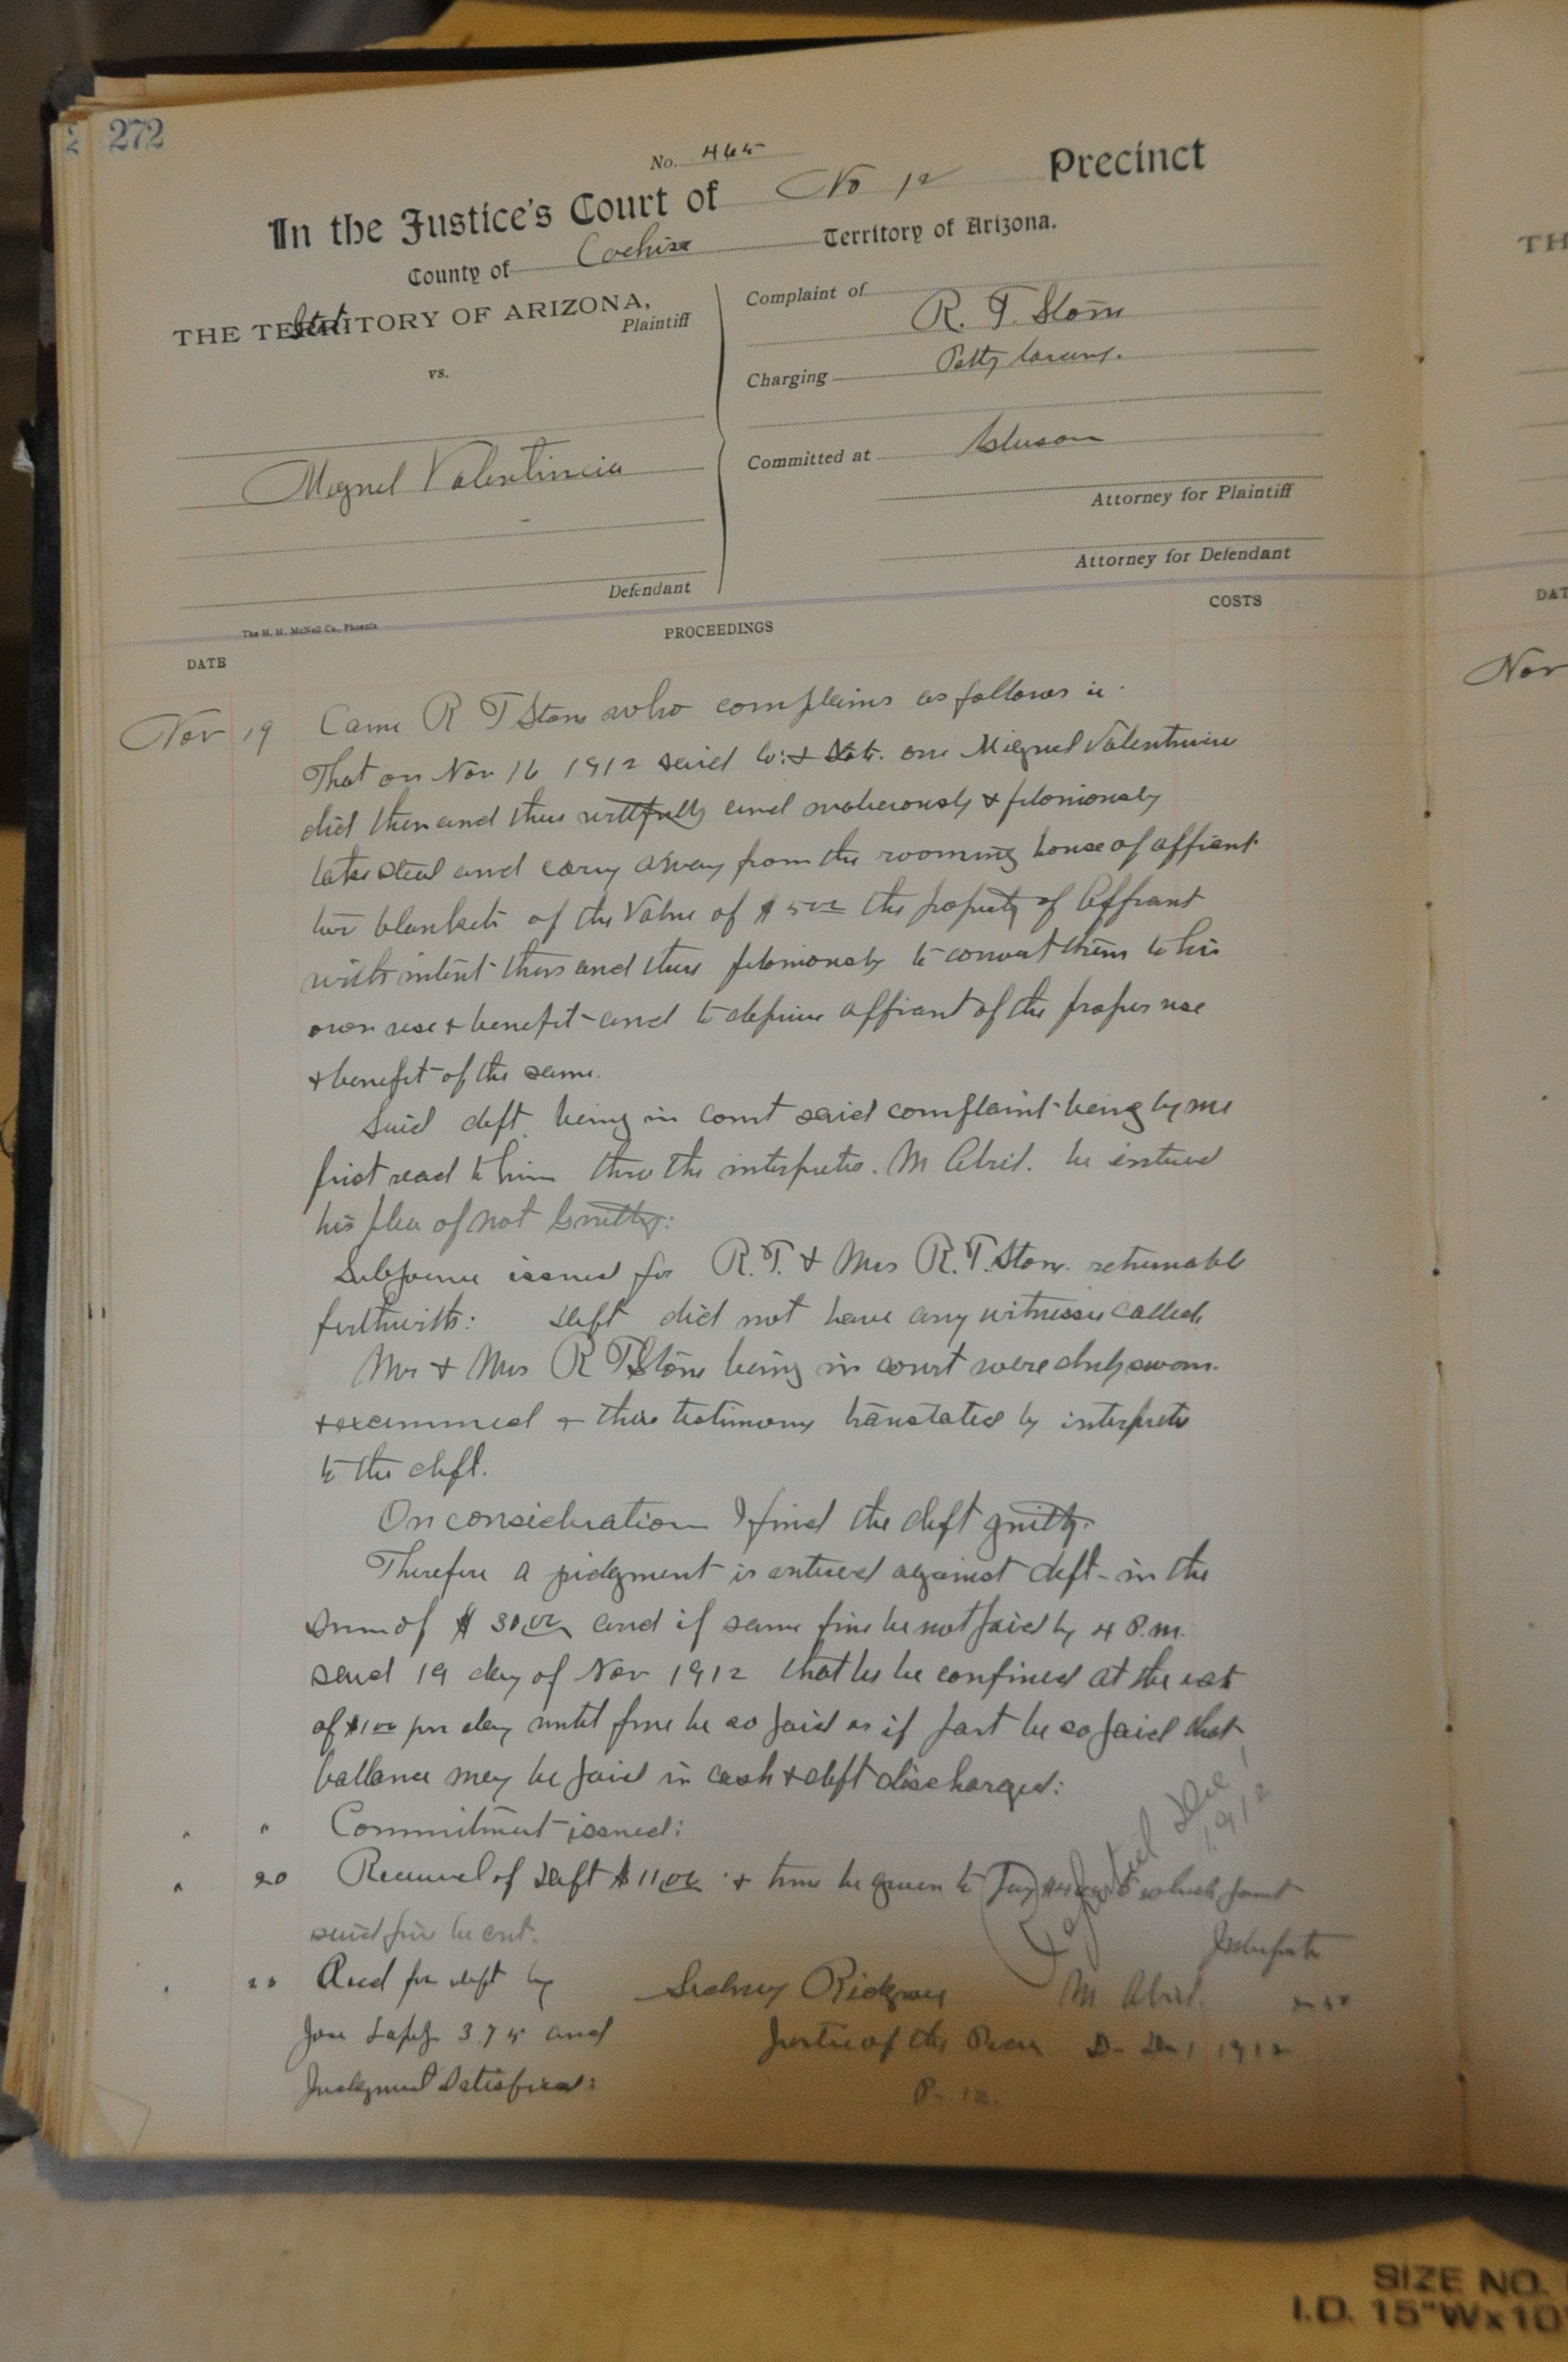 272
No. 465
In the Justice's Court of No 12 Precinct
County of Cochise Territory of Arizona.
THE TERRITORY OF ARIZONA,
State
Plaintiff
vs.
Miguel Valentincia
Defendant
Complaint of
R. T. Stone
Charging Petty Larceny.
Committed at Gleeson
Attorney for Plaintiff
Attorney for Defendant
The H. H. McNeil Co., Phoenix
DATE PROCEEDINGS COSTS
Nov 19 Came R T Stone who complains as follows
That on Nov 16 1912 said Co: & State one Miguel Valentincia
did then and there willfully and maliciously & feloniously
take steal and carry away from the rooming house of affiant
two blankets of the Value of $5 00 the property of Affiant
with intent then and there feloniously to convert them to his
own use & benefit and to deprive affiant of the proper use
& benefit of the same.
Said deft being in court said complaint being by me
first read to him thro the interpreter. M Abril. he entered
his plea of not Guilty:
Subpoena issued for R.T. & Mrs R.T. Stone returnable
forthwith: Deft did not have any witnesses called.
Mr & Mrs R T Stone being in court were duly sworn.
& examined & their testimony translated by interpreter
to the deft.
On consideration I find the deft guilty.
Therefore a judgment is entered against deft in the
sum of $30.00 and if same fine be not paid by 4 P.m.
said 19 day of Nov 1912 that he be confined at the rate
of $1 00 per day until fine be so paid or if part be so paid that
ballance may be paid in cash & deft discharged:
" " Commitment issued:
" 20 Received of Deft $11.00 & time be given to which part
said fine be
Recd for deft by
Jose 3 75 and
Judgment Satisfied:
Sidney Ridgway
Justice of the Peace
P. 12.
Interpreter
M Abril.
Dec 1 1912
Reported Dec 1
1912
TH
DAT
Nov
SIZE NO.
I.D. 15"Wx10